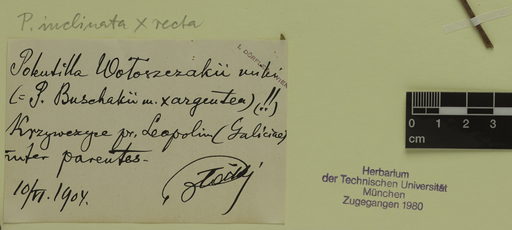 P. inclinata x recta
I. DÖRFLER WIEN
Potentilla Wołoszczakii
(= P. Buschakii m. x argentea) (!!)
Krzywczyce pr. Leopolin (Galiciae)
inter parentes.
10/VI. 1904.
0 1 2 3
cm
Herbarium
der Technischen Universität
München
Zugegangen 1980